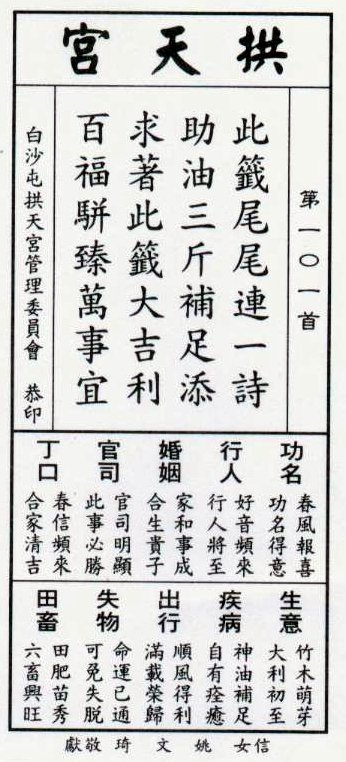 拱天宮
第一〇一首
此籤尾尾連一詩
助油三斤補足添
求著此籤大吉利
百福駢臻萬事宜
白沙屯拱天宮管理委員會 恭印
功名
春風報喜
功名得意
行人
好音頻來
行人將至
婚姻
家和事成
合生貴子
官司
官司明顯
此事必勝
丁口
春信頻來
合家清吉
生意
竹木萌芽
大利初至
疾病
神油補足
自有痊癒
出行
順風得利
滿載榮歸
失物
命運已通
可免失脫
田畜
田肥苗秀
六畜興旺
信女 姚文琦 敬獻